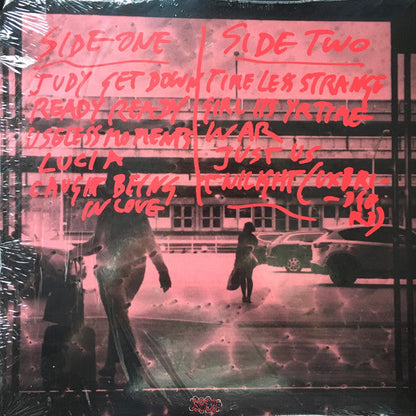 SIDE ONE
JUDY GET DOWN
READY READY
USELESS MOMENTS
LUCIA
CAUGHT BEING
IN LOVE
SIDE TWO
TIMELESS STRANGE
GIRL ITS YR TIME
WAR
JUST US
TWILIGHT